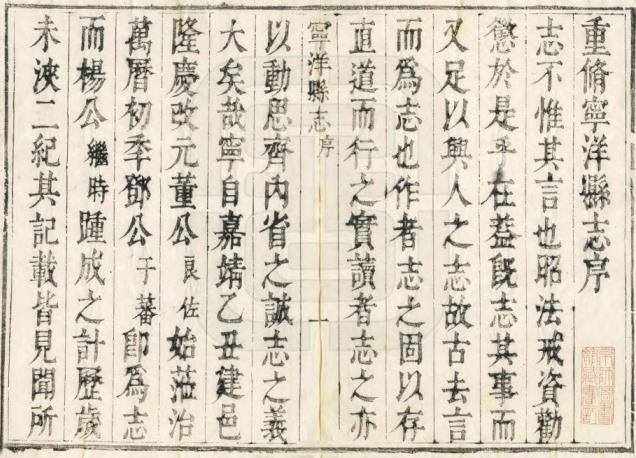 重脩寧洋縣志序
志不惟其言也昭法戒資勸
懲於是乎在葢旣志其事而
又足以興人之志故古去言
而爲志也作者志之固以存
直道而行之實讀者志之亦
寧洋縣志序 一
以動思齊內省之誠志之義
大矣哉寧自嘉靖乙丑建邑
隆慶改元董公良佐始蒞治
萬曆初季鄧公于蕃卽爲志
而楊公繼時踵成之計歷歲
未浹二紀其記載皆見聞所